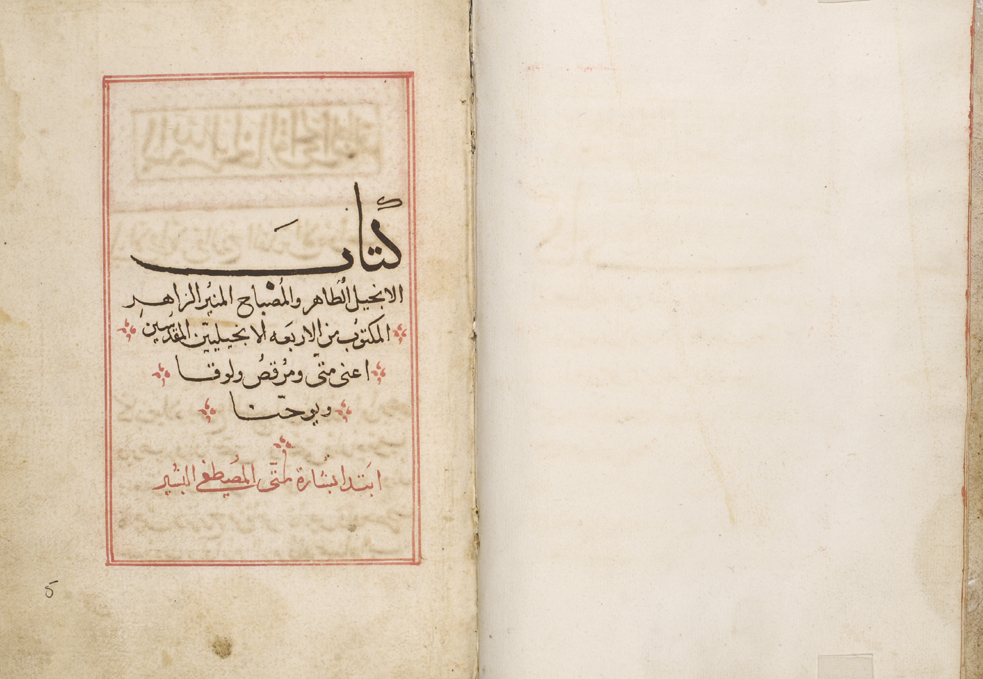 كتاب
الانجيل الطاهر والمُصباح المنيُر الزاهر
المكتوُب من الاربعَه الانجيليّين المقدّسين
اعنى متّى ومرُقصُ ولوقا
ويوحنّا
ابتدا بشارة متّى المُصطفى البشير
5